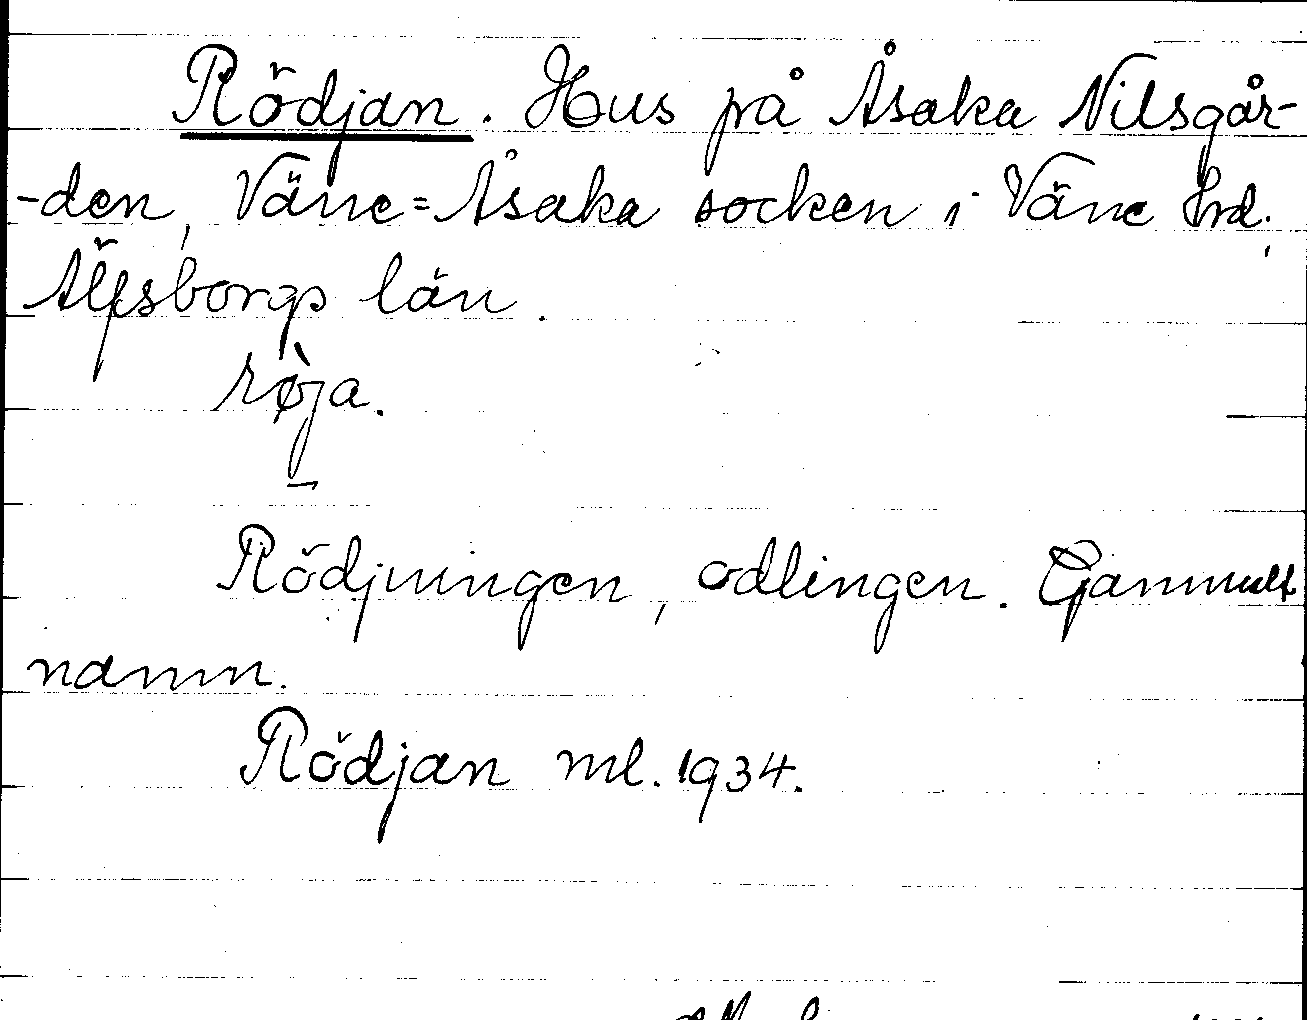 Rödjan. Hus på Åsaka Nilsgår-
-den, Väne=Åsaka socken i Väne hrd,
Älfsborgs län.
rø̀ja.
Rödjningen, odlingen. Gammalt
namn.
Rödjan ml. 1934.